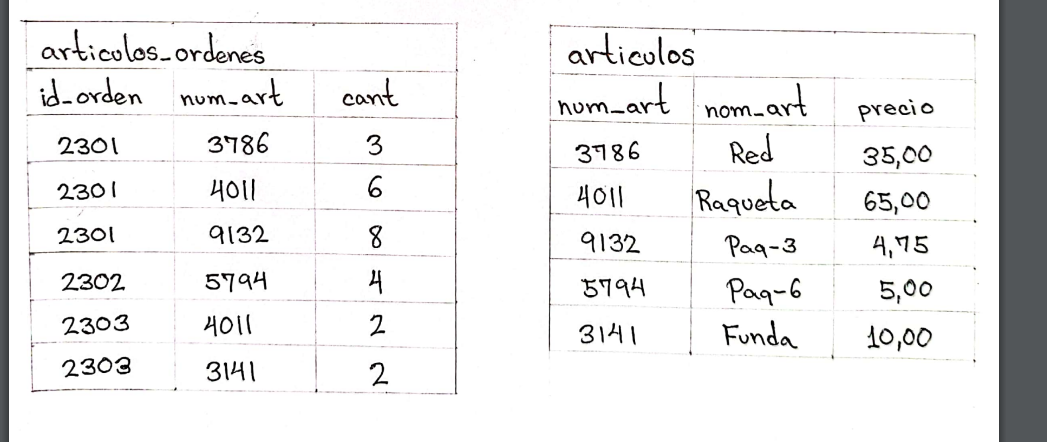 articulos_ordenes
id_orden num_art cant
2301 3786 3
2301 4011 6
2301 9132 8
2302 5794 4
2303 4011 2
2303 3141 2
articulos
num_art nom_art precio
3786 Red 35,00
4011 Raqueta 65,00
9132 Paq-3 4,75
5794 Paq-6 5,00
3141 Funda 10,00